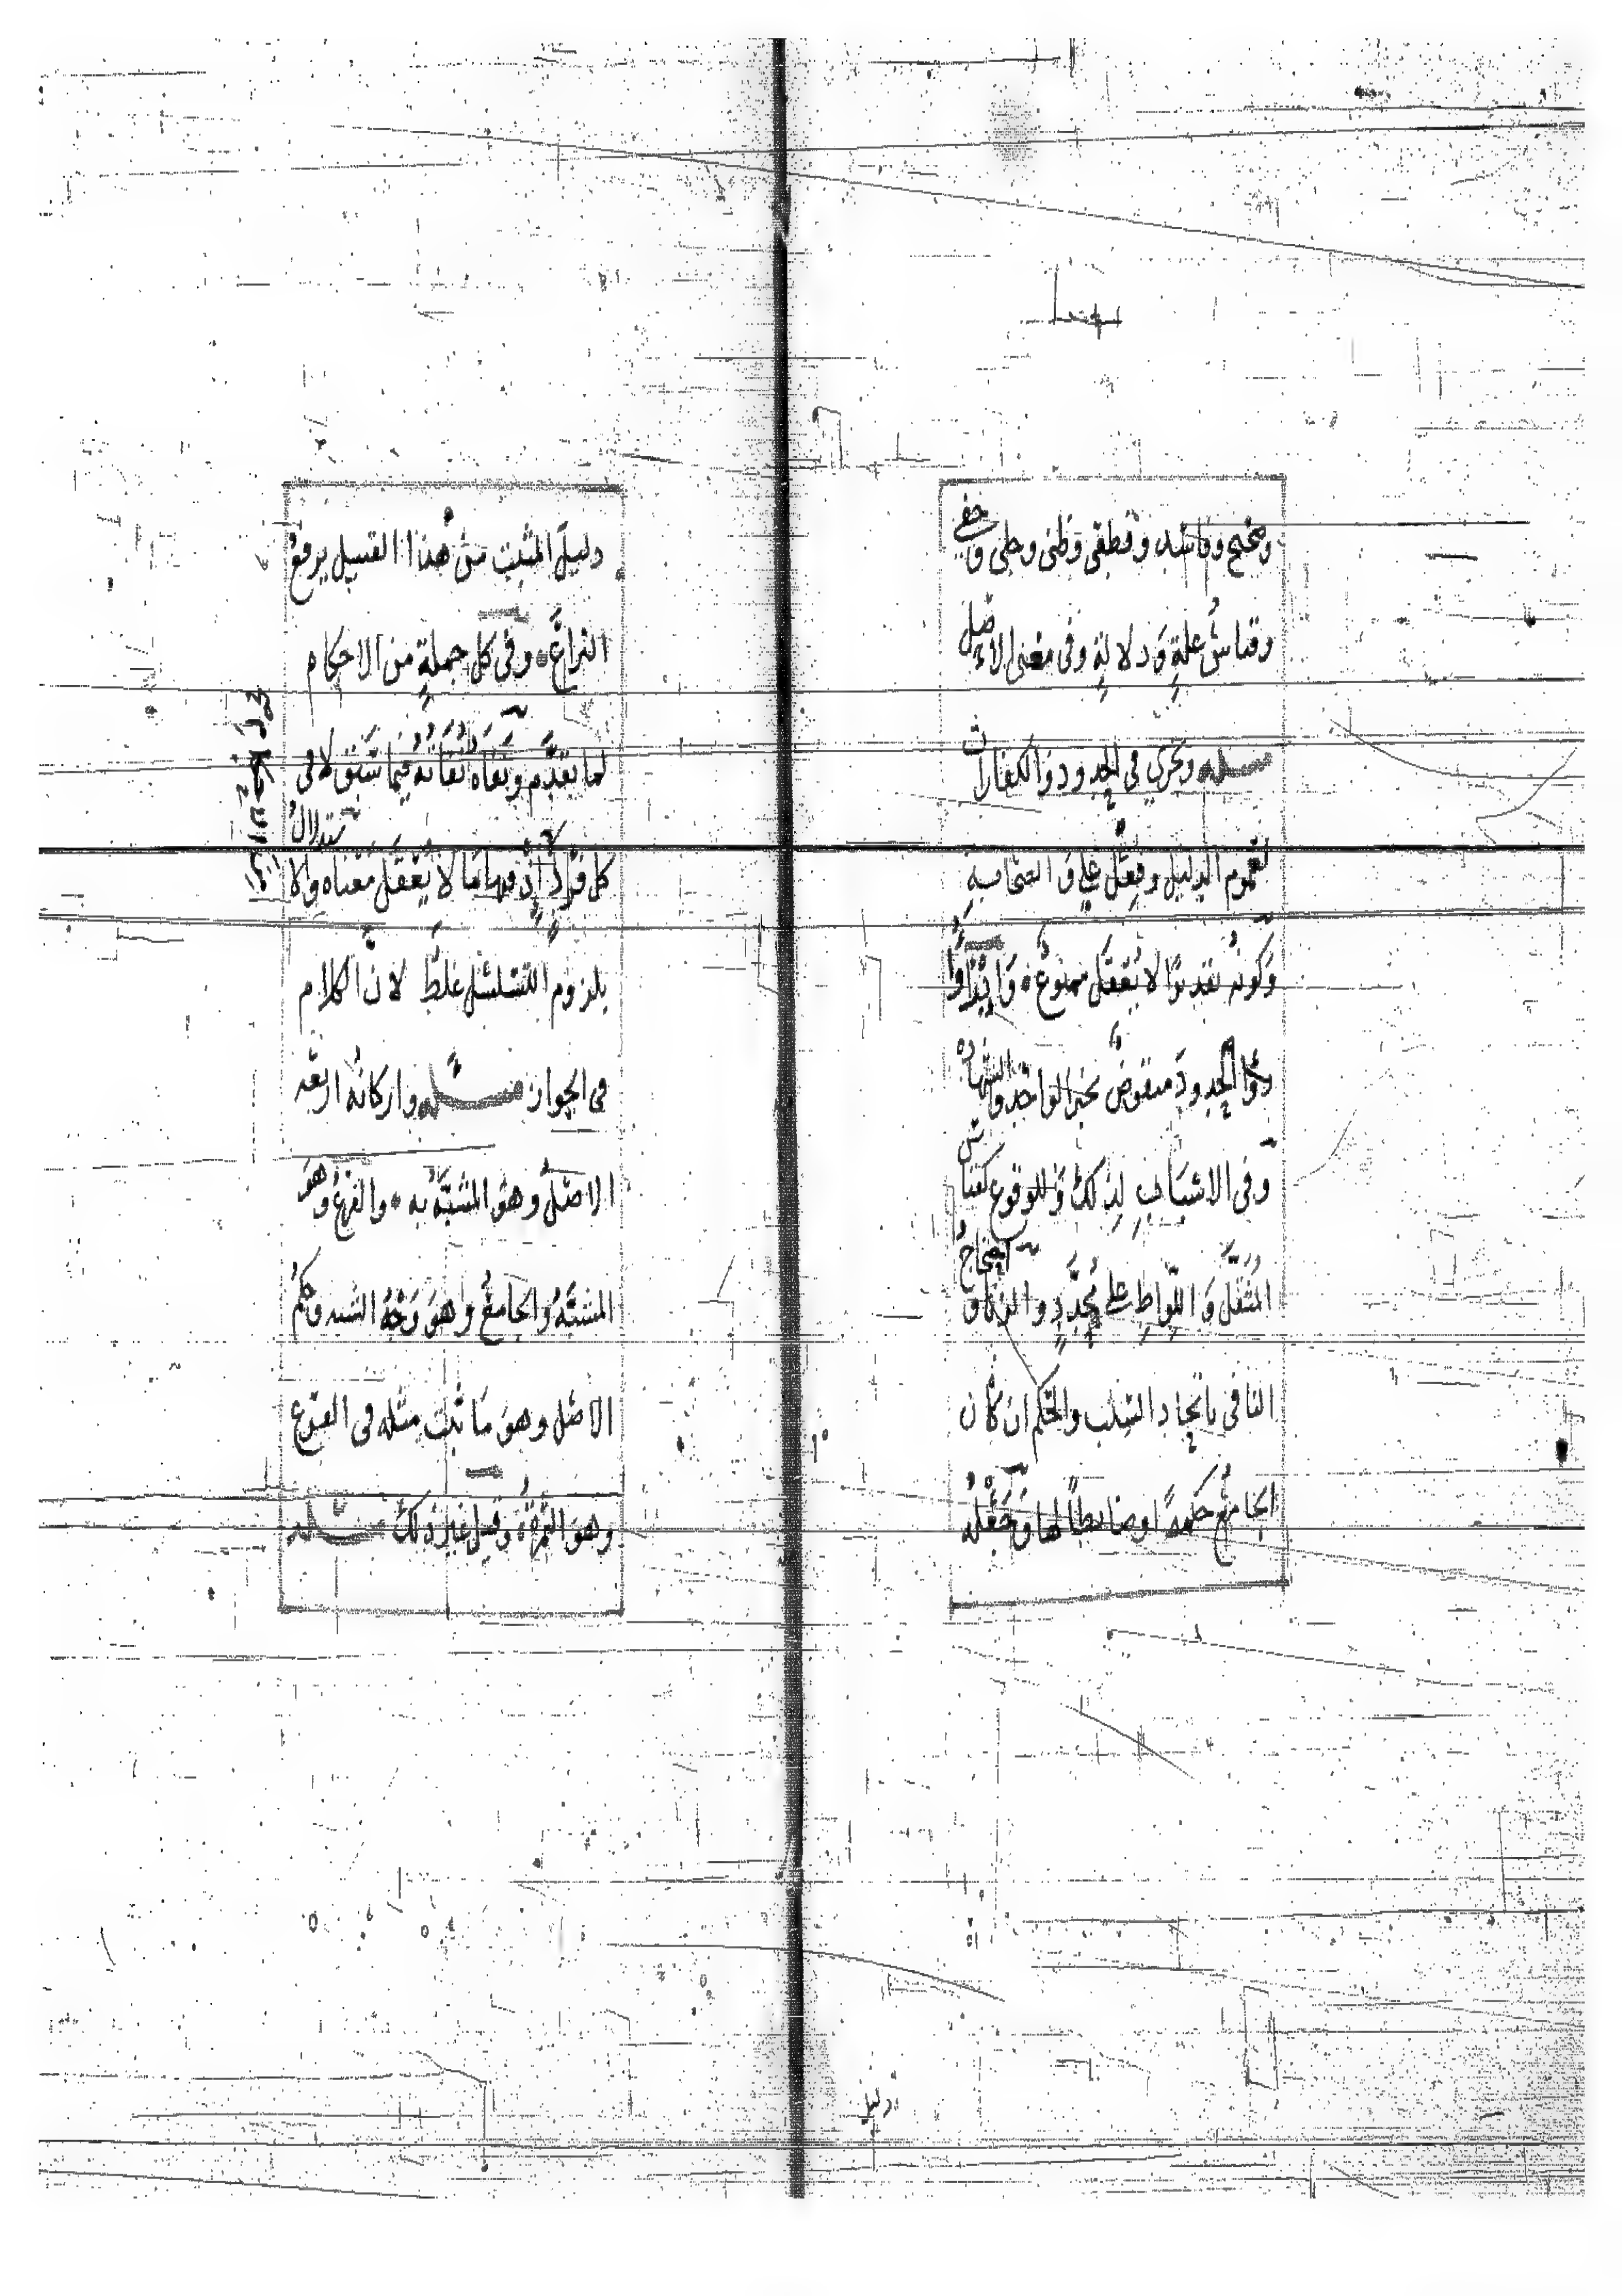 وصحيح وفاسد وقطعي وظني وجلي وخفي
وقياس علة ودلالة وفي معنى الاصل
مسئلة ويجري في الحدود والكفارات
لعموم الدليل وفعل علي والصحابة
وكونه تقديرًا لا يُعقل ممنوع وادرؤا
الحدود منقوض بخبر الواحد والشهادة
وفي الاسباب لذلك وللوقوع كقياس
المثقل واللواط على محدد والزنا واحتجاج
النافي باتحاد السبب والحكم ان كان
الجامع حكمة او ضابطاً لها وجعله
دليل
دليل المثبت من هذا القبيل يرفع
النزاع وفي كل جملة من الاحكام
لما تقدم ونفاه نفاته فيما سبق لا في
كل فرد اذ فيها ما لا يعقل معناه والاستدلال
بلزوم التسلسل غلط لان الكلام
في الجواز مسئلة واركانه اربعة
الاصل وهو المشبه به والفرع وهو
المشبه والجامع وهو وجه الشبه وحكم
الاصل وهو ما ثبت مثله في الفرع
وهو الثمرة وقيل غير ذلك مسئلة